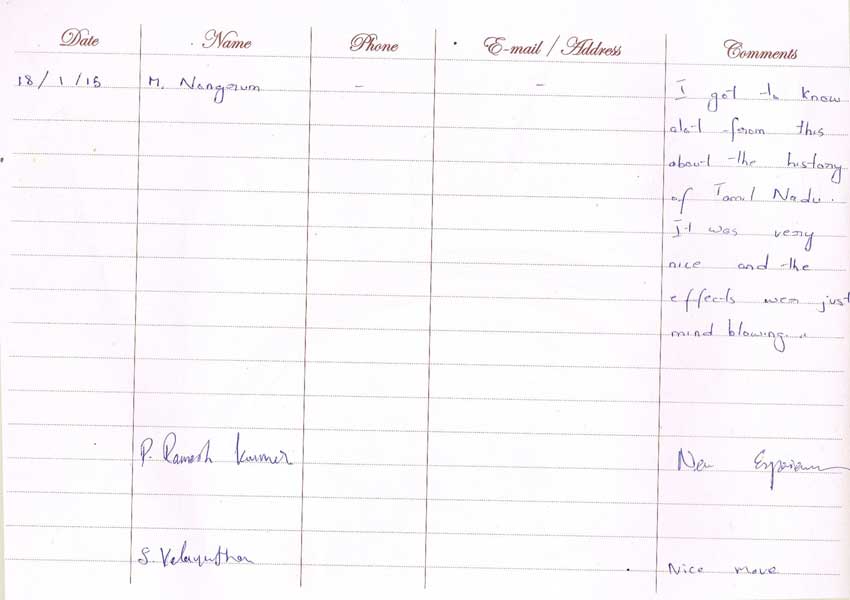 Date Name Phone E-mail / Address Comments
18/1/15 M. - - I got to know
alot from this
about the history
of Tamil Nadu.
It was very
nice and the
effects wer just
mind blowing..
P. Ramesh Kumar New
S. Velayuthan Nice move